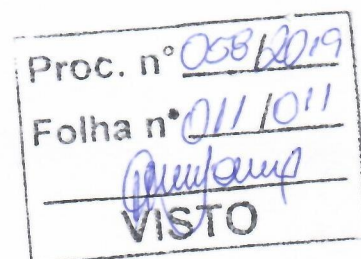 Proc. n° 008/2019
Folha n° 011/011
VISTO